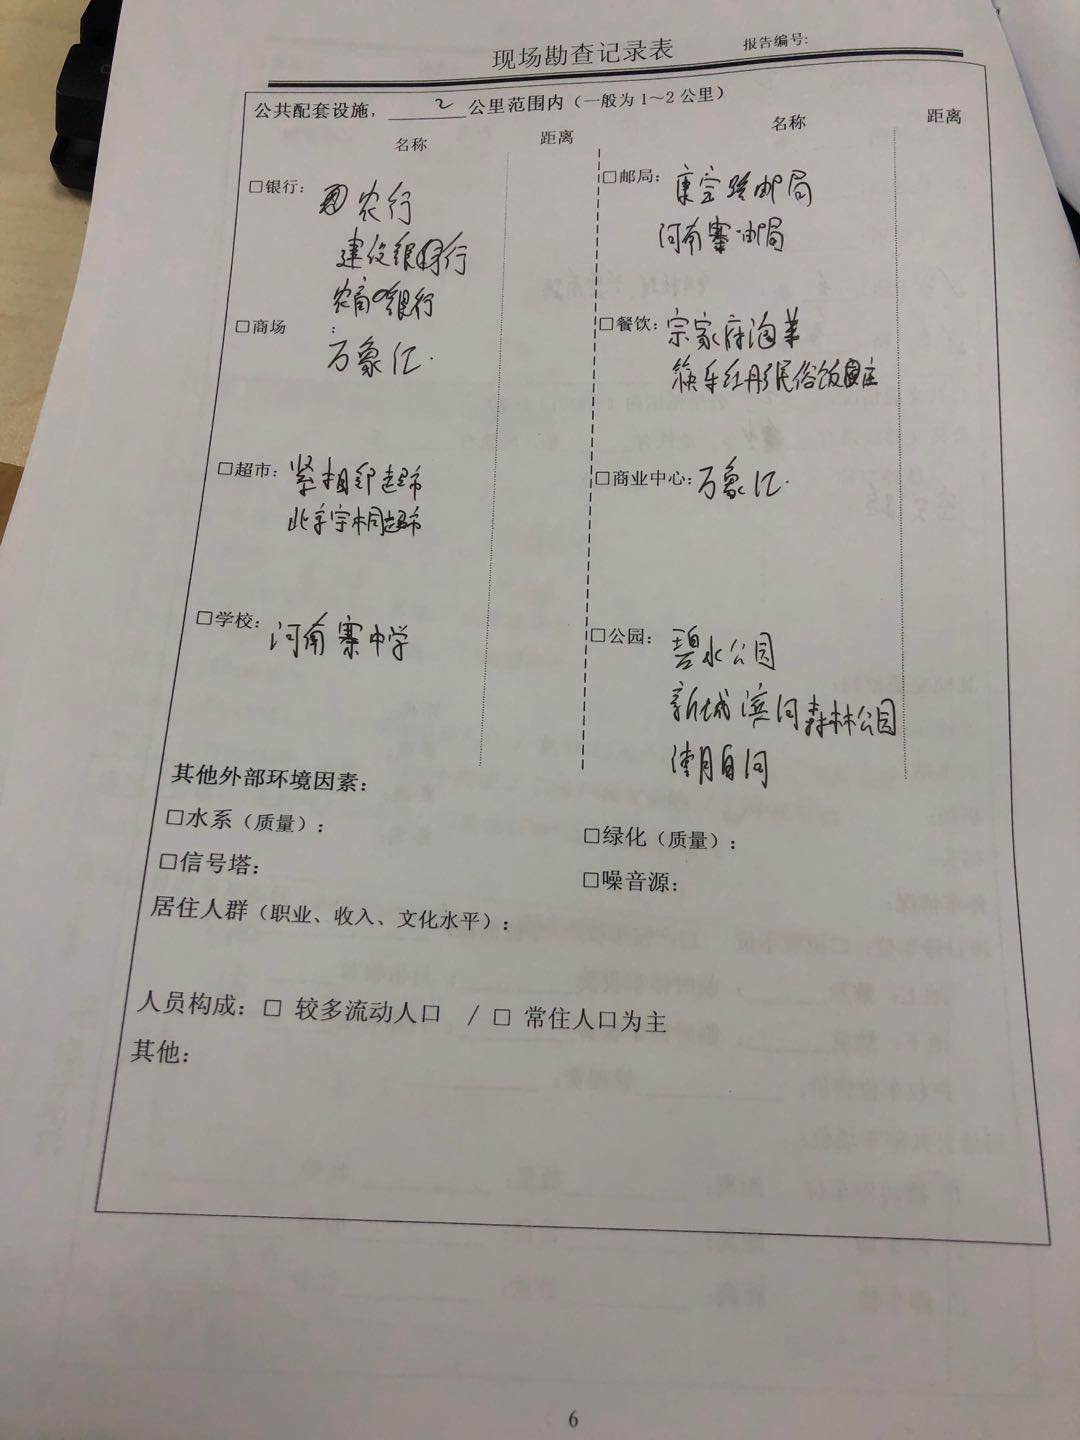 现场勘查记录表
报告编号:
公共配套设施，2公里范围内（一般为1～2公里）
名称 距离 名称 距离
□银行： 农行
建设银行
农商银行
□邮局： 康宝路邮局
河南寨邮局
□商场：
万象汇.
□餐饮：宗家府淘菜
筷乐红彤民俗饭庄
□超市：紧相邻超市
北京宇桐超市
□商业中心：万象汇.
□学校：河南寨中学
□公园：碧水公园
新城滨河森林公园
潮白河
其他外部环境因素：
□水系（质量）： □绿化（质量）：
□信号塔： □噪音源：
居住人群（职业、收入、文化水平）：
人员构成：□ 较多流动人口 / □ 常住人口为主
其他：
6